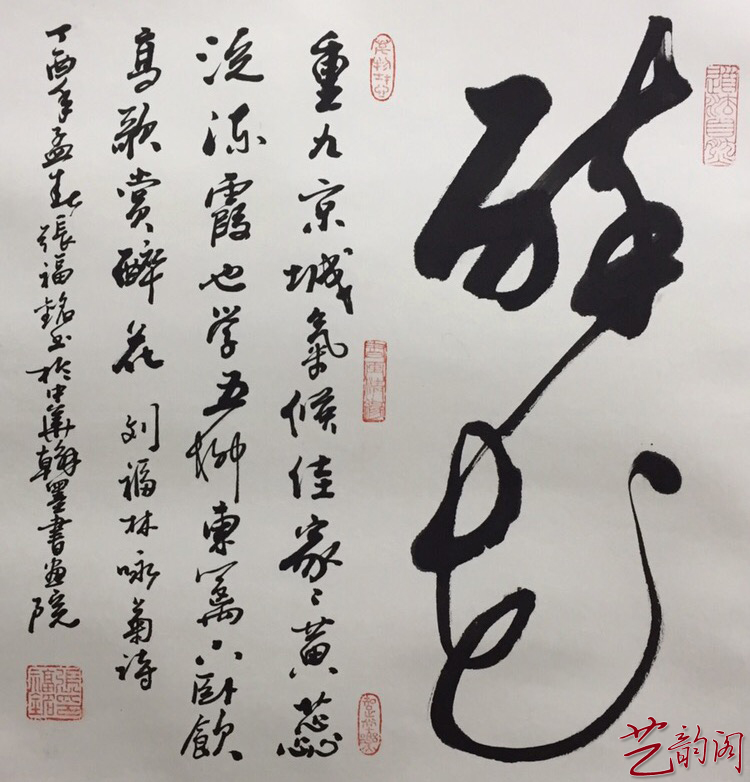 醉花
道法自然
重九京城氣候佳家々黄蕊
泛流霞也学五柳東篱下卧飲
高歌赏醉花 刘福林咏菊诗
丁酉年孟春張福銘书於中華翰墨書画院
艺韵阁